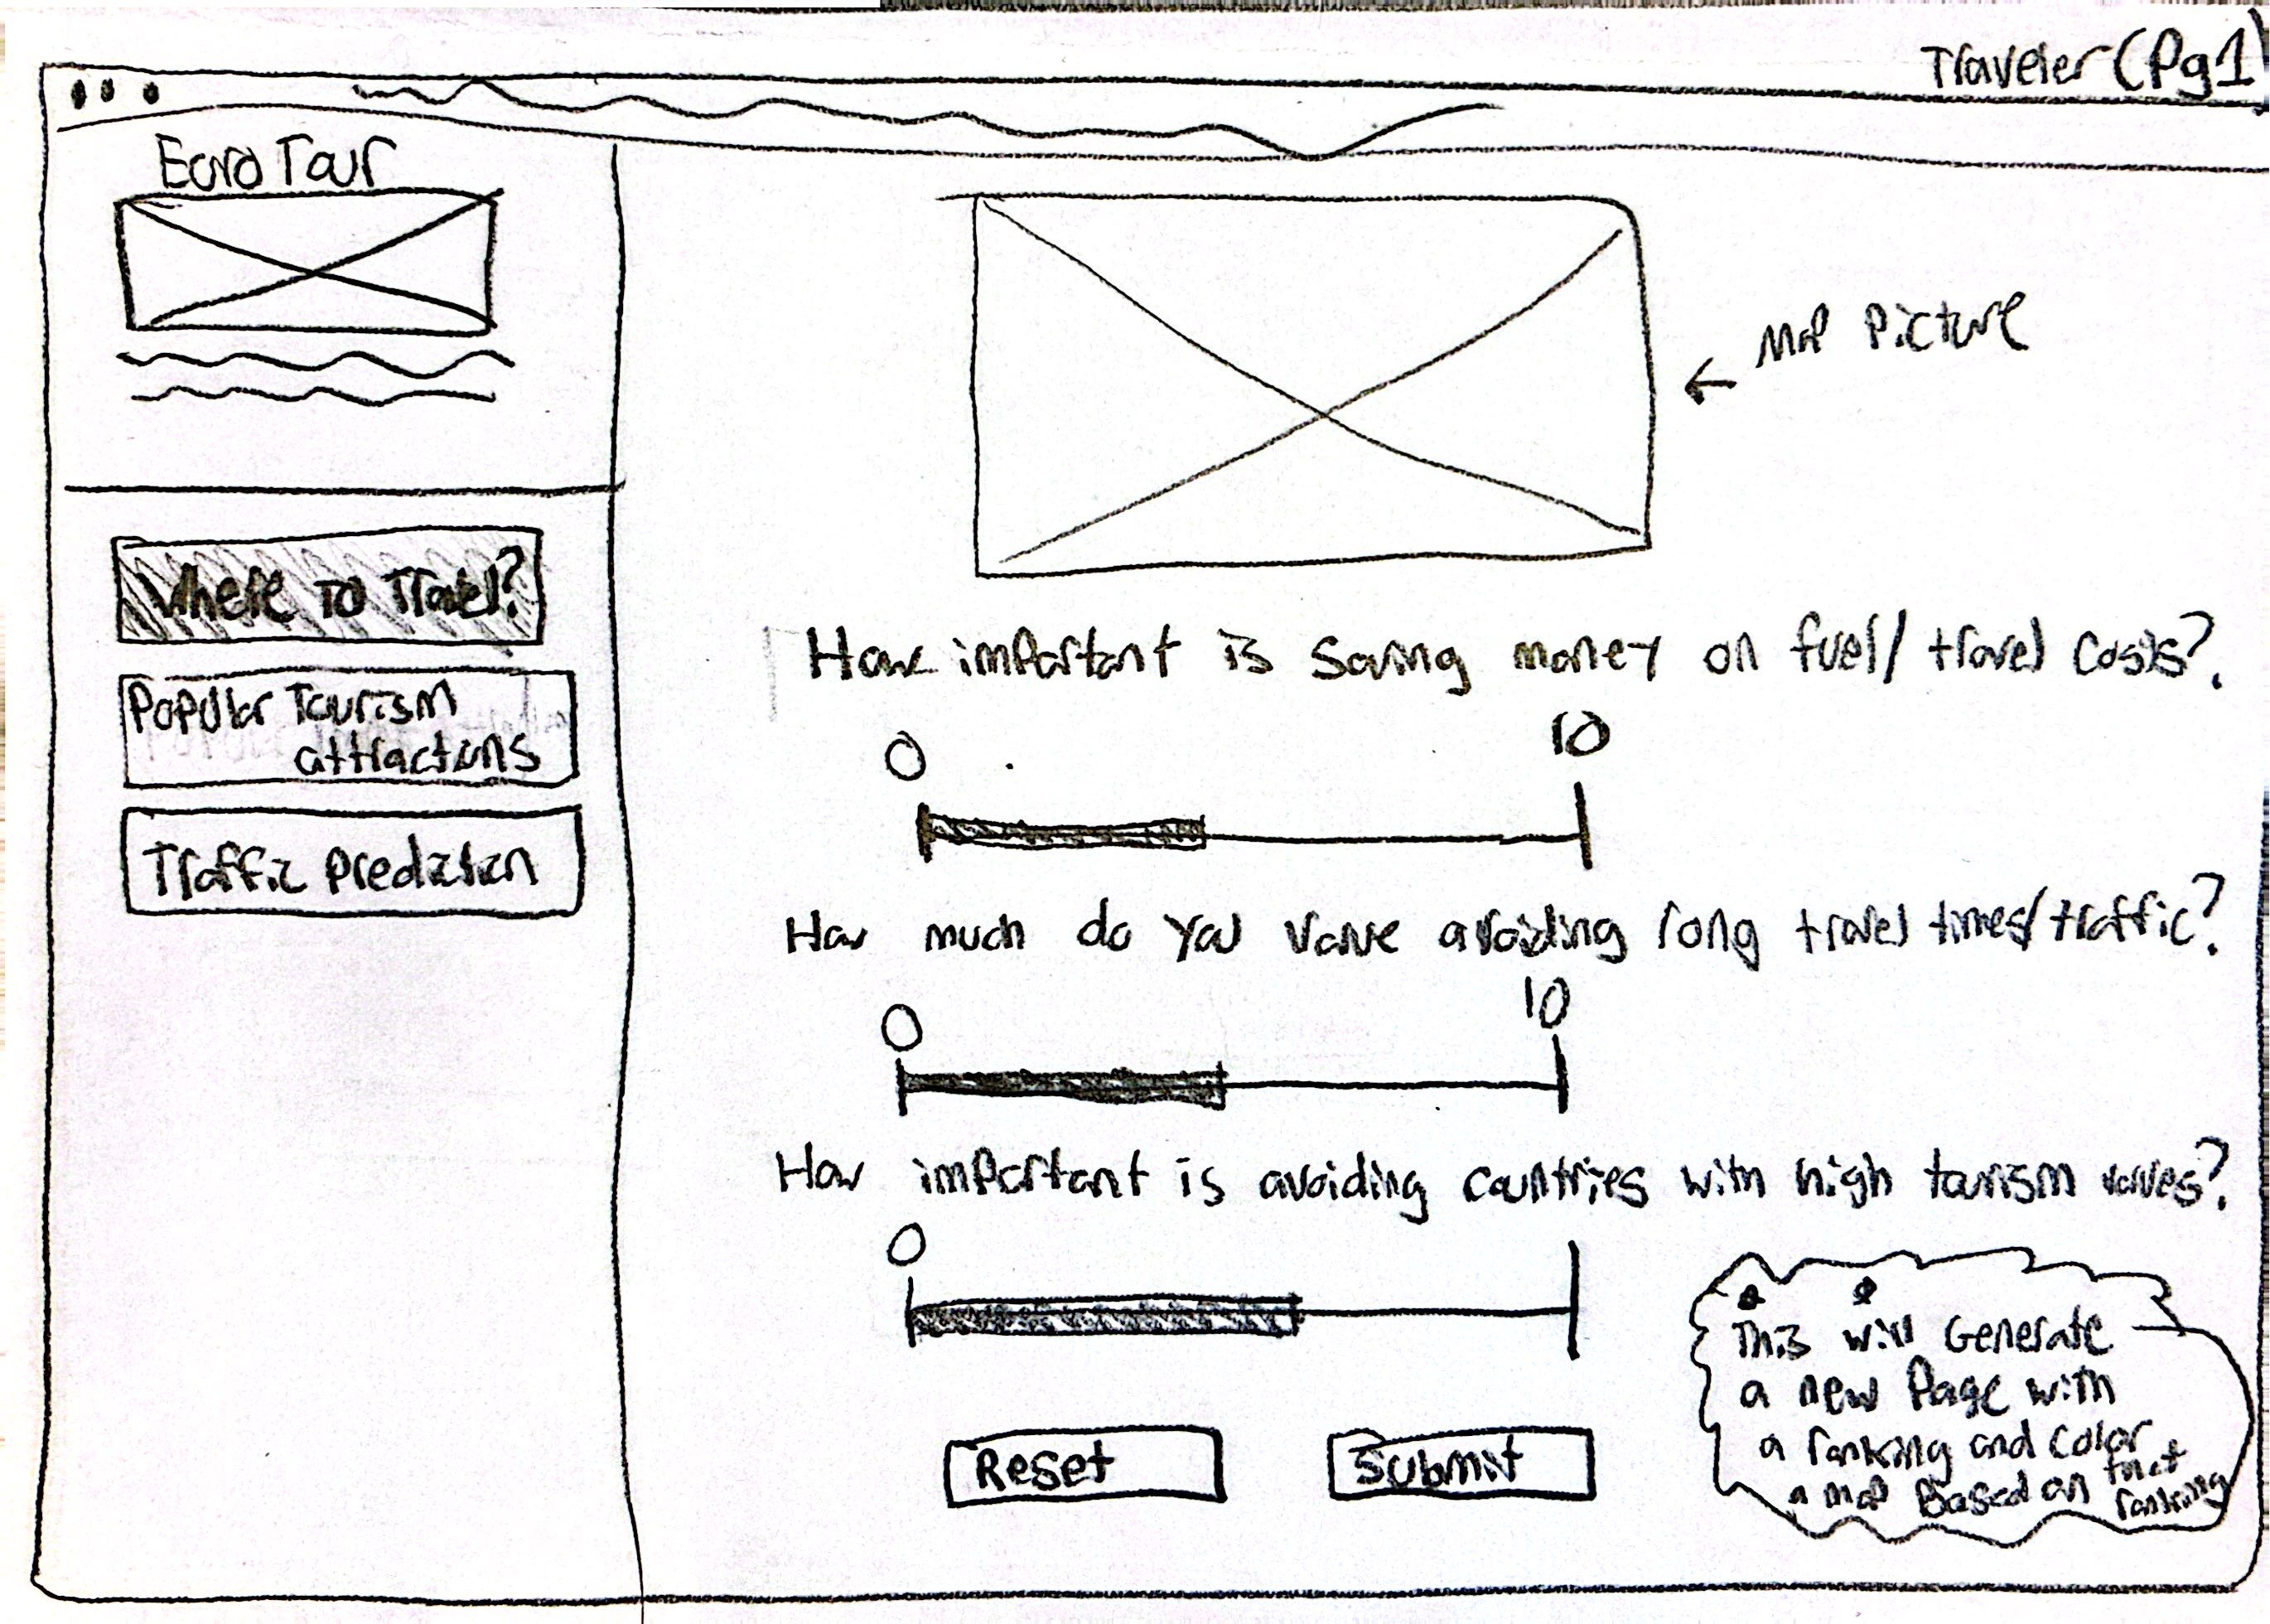 Traveler (Pg1)
Euro Tour
Where to Travel?
Popular Tourism
attractions
Traffic Prediction
← Map Picture
How important is saving money on fuel/travel costs?
0 10
How much do you value avoiding long travel times/traffic?
0 10
How important is avoiding countries with high tourism values?
0
Reset Submit
This will Generate
a new Page with
a ranking and color
a map Based on that
ranking